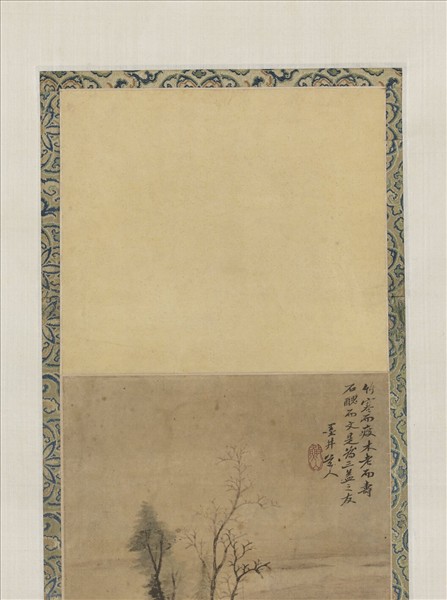 竹寒而木老而壽
石醜而文是為三益之友
墨井道人